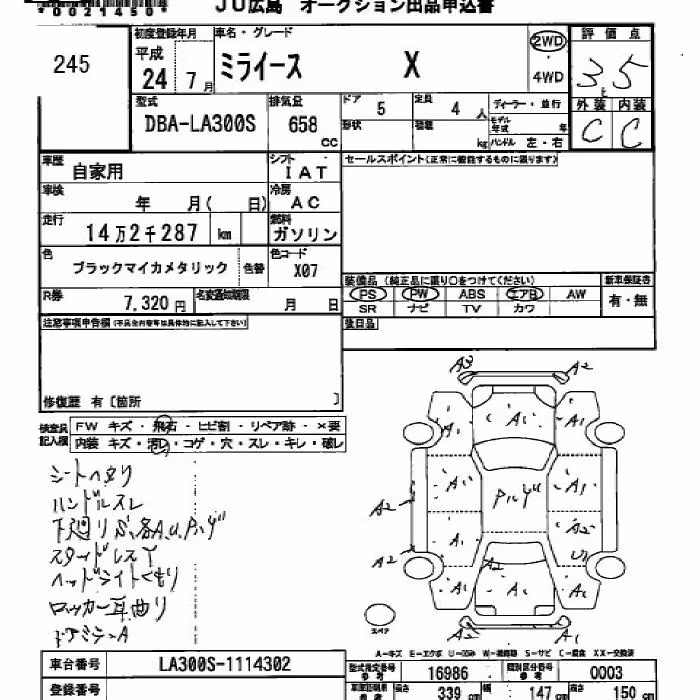 *0021450*
JU広島 オークション出品申込書
245
初度登録年月
平成
24 7月
車名・グレード
ミライース X
2WD
・
4WD
評価点
3.5
外装 内装
C C
型式
DBA-LA300S
排気量
658 cc
ドア 5
定員 4 人
形状
積載 kg
ディーラー・並行
モデル年式 年
ハンドル 左・右
車歴
自家用
シフト
IAT
車検
年 月( 日)
冷房
AC
走行
14万2千287 km
燃料
ガソリン
色
ブラックマイカメタリック 色替
色コード
X07
R券
7,320円
名変通知期限
月 日
セールスポイント(正常に機能するものに限ります)
装備品(純正品に限り○をつけてください)
PS PW ABS エアB AW
SR ナビ TV カワ
新車保証書
有・無
後日品
注意事項申告欄(不具合内容等は具体的に記入して下さい)
修復歴 有〔箇所 〕
検査員記入欄
FW キズ・飛石・ヒビ割・リペア跡・×要
内装 キズ・汚レ・コゲ・穴・スレ・キレ・破レ
シートヘタリ
ハンドルスレ
下廻りS、各A.U.P.
スタッドレス
ヘッドライトくもり
ロッカー耳曲り
ドアミラーA
A3 A2
A1 A1 A1
A1 A1
A2 A2
A1 A2
U1
A2 A2
A1 A1 A1
A2 A1
スペア
A-キズ E-エクボ U-凹み W-補修跡 S-サビ C-腐食 XX-交換済
車台番号
LA300S-1114302
登録番号
型式指定番号
参考
16986
類別区分番号
参考
0003
長さ 339 cm
幅 147 cm
高さ 150 cm